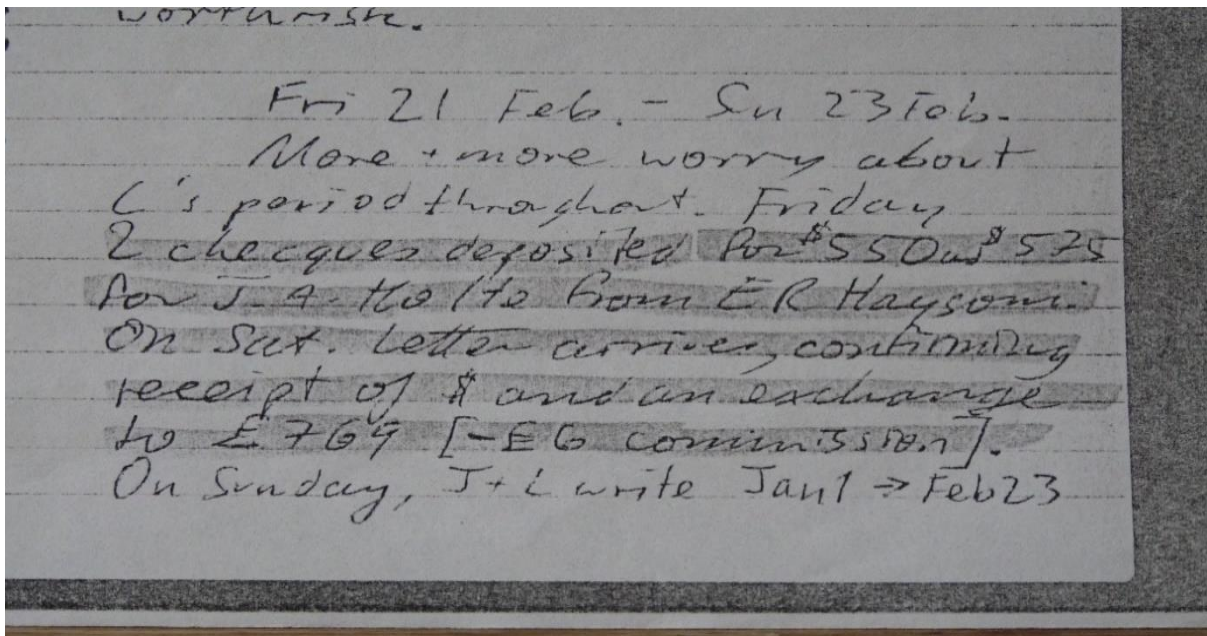 worthwhile.
Fri 21 Feb. - Sun 23 Feb.
More + more worry about
L's period throughout. Friday
2 checques deposited for $550 and $575
for J.A. Holte from ER Haysom.
On Sat. letter arrives, confirming
receipt of $ and an exchange
to £769 [-£6 commission].
On Sunday, J+L write Jan1 → Feb23